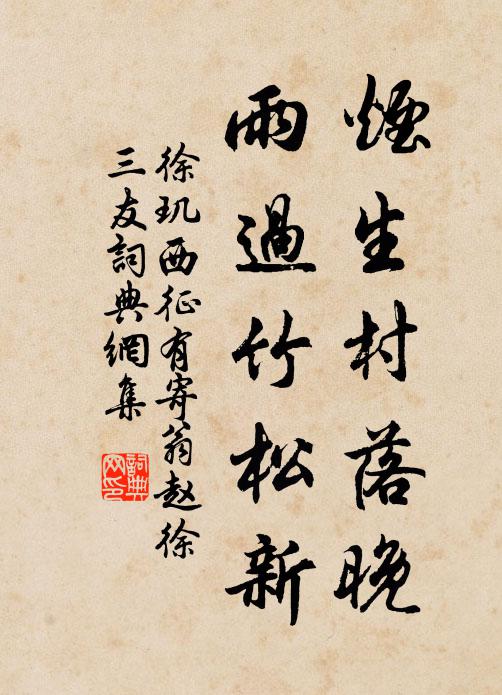 煙生村落晚
雨過竹松新
徐玑西征有寄翁赵徐
三友詞典網集
詞典网印